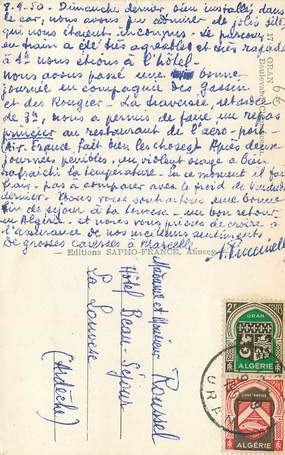 8.9.50 - Dimanche dernier bien installés dans le
car, nous avons pu admirer de jolis sites
qui nous étaient inconnus. Le parcours
en train a été très agréable et très rapide
à 1h nous étions à l'hôtel.
Nous avons passé une bonne
journée en compagnie des Gassen
et des Rougier. La traversée, retardée
de 3h, nous a permis de faire un repas
princier au restaurant de l'aéro-port
Air France fait bien les choses! Après deux
journées pénibles, un violent orage a bien
rafraichi la température. En ce moment il fait
frais. pas à comparer avec le froid de
dernier. Nous vous souhaitons une bonne
fin de séjour à la Louvesc - un bon retour
en Algérie - et nous vous prions de croire à
l'assurance de nos meilleurs sentiments
De grosses caresses à Marcelle
17 ORAN
Boulevard
Editions SAPHO-FRANCE, Annecy
Madame et Monsieur Roussel
Hôtel Beau-Séjour
La Louvesc
(Ardèche)
2F
ORAN
ALGÉRIE
ALGÉRIE
ORAN